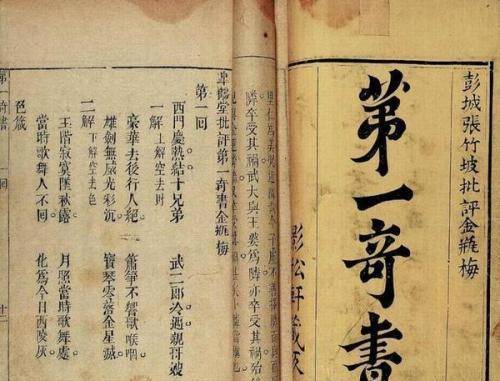 彭城張竹坡批評金瓶梅
第一奇書
影松軒藏板
鄰卒受其禍武大與王婆爲鄰亦卒受其禍殆
皐鶴堂批評第一奇書金瓶梅
第一回
西門慶熱結十兄弟 武二郎冷遇親哥嫂
一解 上解空去財
豪華去後行人絕 簫箏不響歌喉咽
雄劍無威光彩沉 寶琴零落金星滅
二解 下解空去色
玉階寂寞墜秋露 月照當時歌舞處
當時歌舞人不回 化爲今日西陵灰
色箴
第一奇書 一回 十二